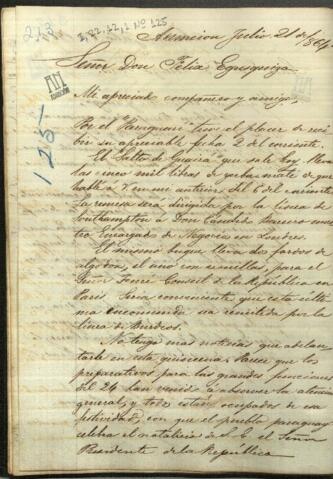 213
I, 22, 12, 1 Nº 125
Asuncion Julio 21 de 1864
Señor Don Felix Egusquiza
AN
ASUNCIÓN
125-
Mi apreciado compañero y amigo,
Por el Paraguari tuve el placer de reci
bir su apreciable fecha 2 del corriente.
El Salto de Guaira que sale hoy lleva
las cinco mil libras de yerba mate de que
hablé a V en mi anterior del 6 del corriente.
La remesa será dirigida por la linea de
Southampton a Don Candido Bareiro nues
tro Encargado de Negocios en Londres.
El mismo buque lleva dos fardos de
algodon, el uno con semillas, para el
Señor Tenre Consul de la Republica en
Paris. Seria conveniente que esta ulti
ma encomienda sea remitida por la
linea de Burdeos.
No tengo mas noticias que adelan
tarle en esta quincena. Parece que los
preparativos para las grandes funciones
del 24 han venido a absorver la atencion
general, y todos estan ocupados de esa
festividad, con que el pueblo paraguayo
celebra el natalicio de S. E. el Señor
Presidente de la Republica